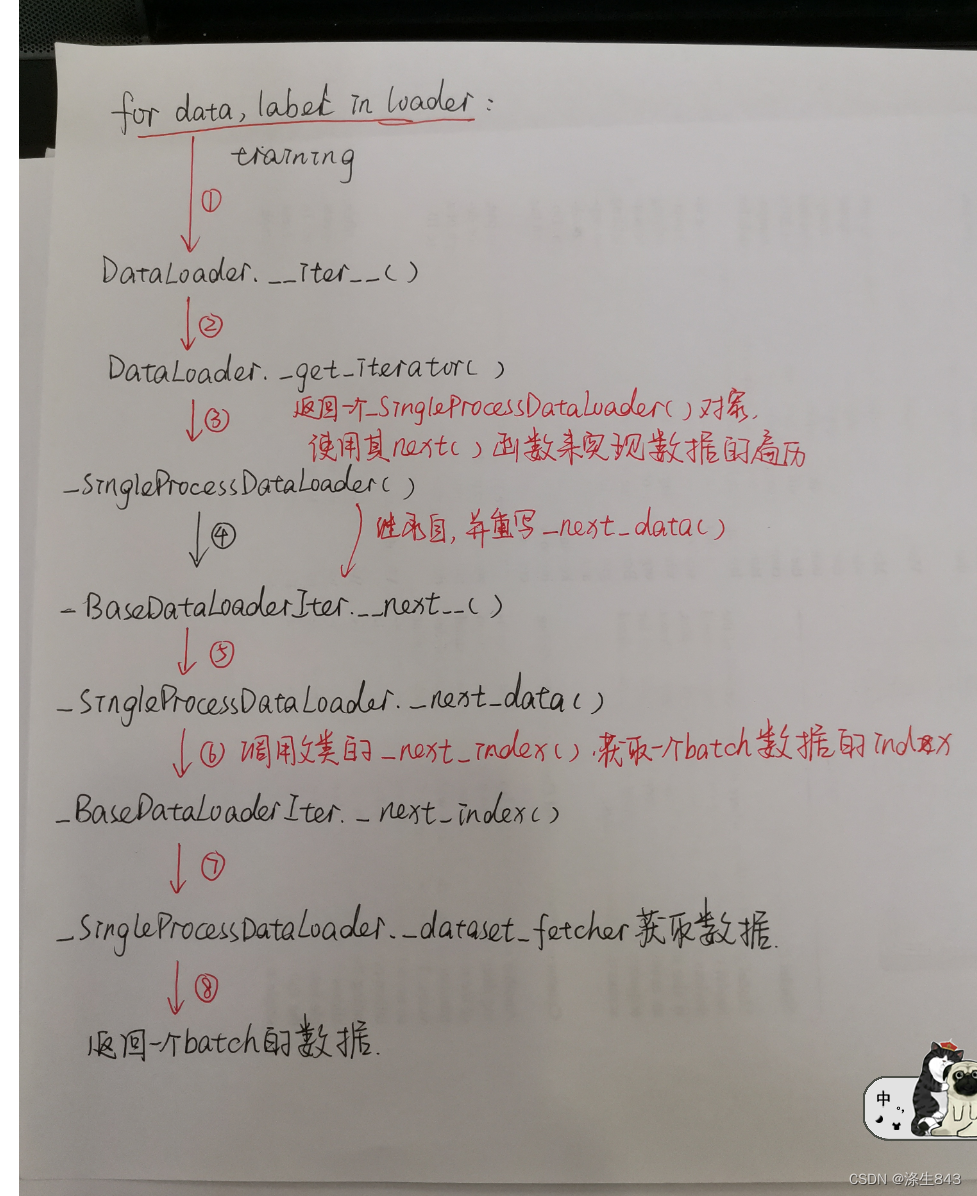 for data, label in loader:
training
①
DataLoader.__iter__()
②
DataLoader._get_iterator()
③ 返回一个_SingleProcessDataLoader()对象,
使用其next()函数来实现数据的遍历
_SingleProcessDataLoader()
④ 继承自,并重写_next_data()
_BaseDataLoaderIter.__next__()
⑤
_SingleProcessDataLoader._next_data()
⑥ 调用父类的_next_index(),获取一个batch数据的index
_BaseDataLoaderIter._next_index()
⑦
_SingleProcessDataLoader._dataset_fetcher获取数据.
⑧
返回一个batch的数据.
中
CSDN @涤生843